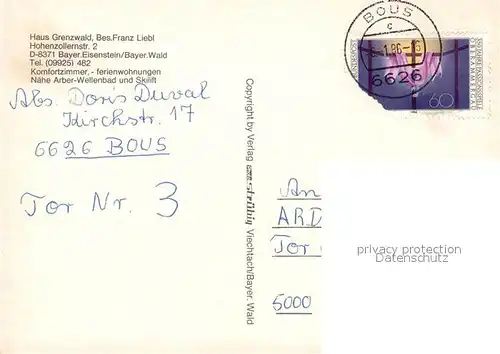 Haus Grenzwald, Bes.Franz Liebl
Hohenzollernstr. 2
D-8371 Bayer.Eisenstein/Bayer.Wald
Tel. (09925) 482
Komfortzimmer, - ferienwohnungen
Nähe Arber-Wellenbad und Skilift
Abs. Doris Duval
Kirchstr. 17
6626 BOUS
Tor Nr. 3
Copyright by Verlag
Viechtach/Bayer. Wald
BOUS
c
6626
60
OBERAMMERGAU
An
ARD
Tor
5000
privacy protection
Veikkos.com